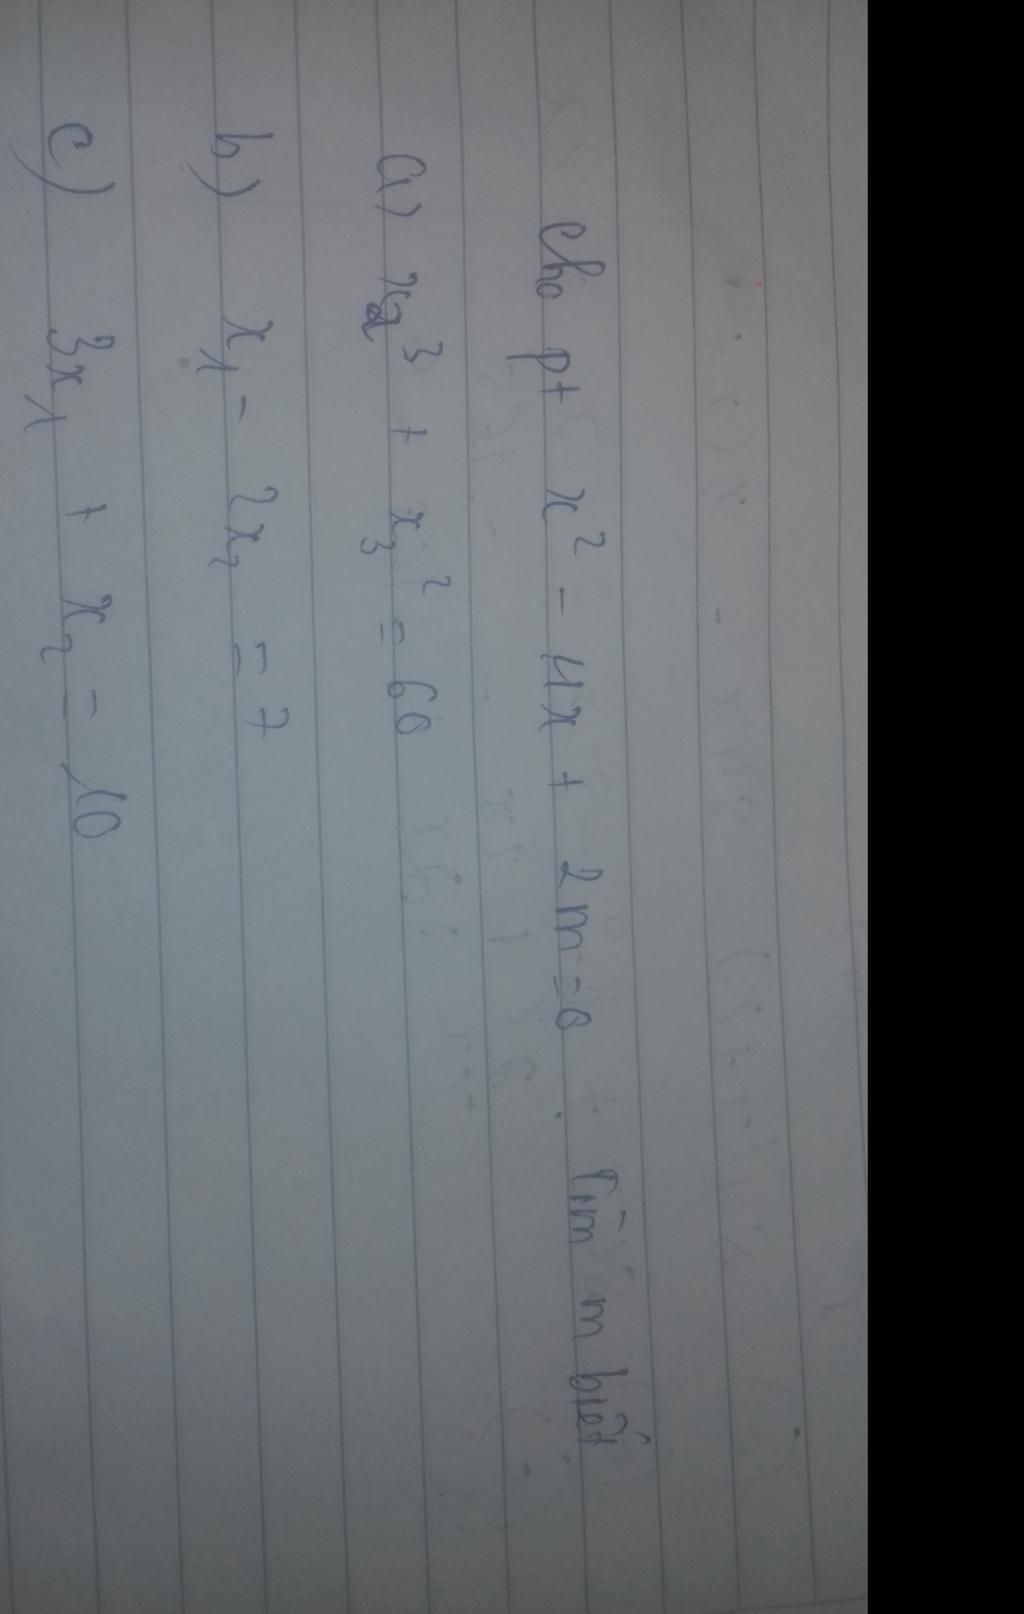 Cho pt x² - 4x + 2m = 0. Tìm m biết
a) x₂³ + x₃² = 60
b) x₁ - 2x₂ = 7
c) 3x₁ + x₂ = 10